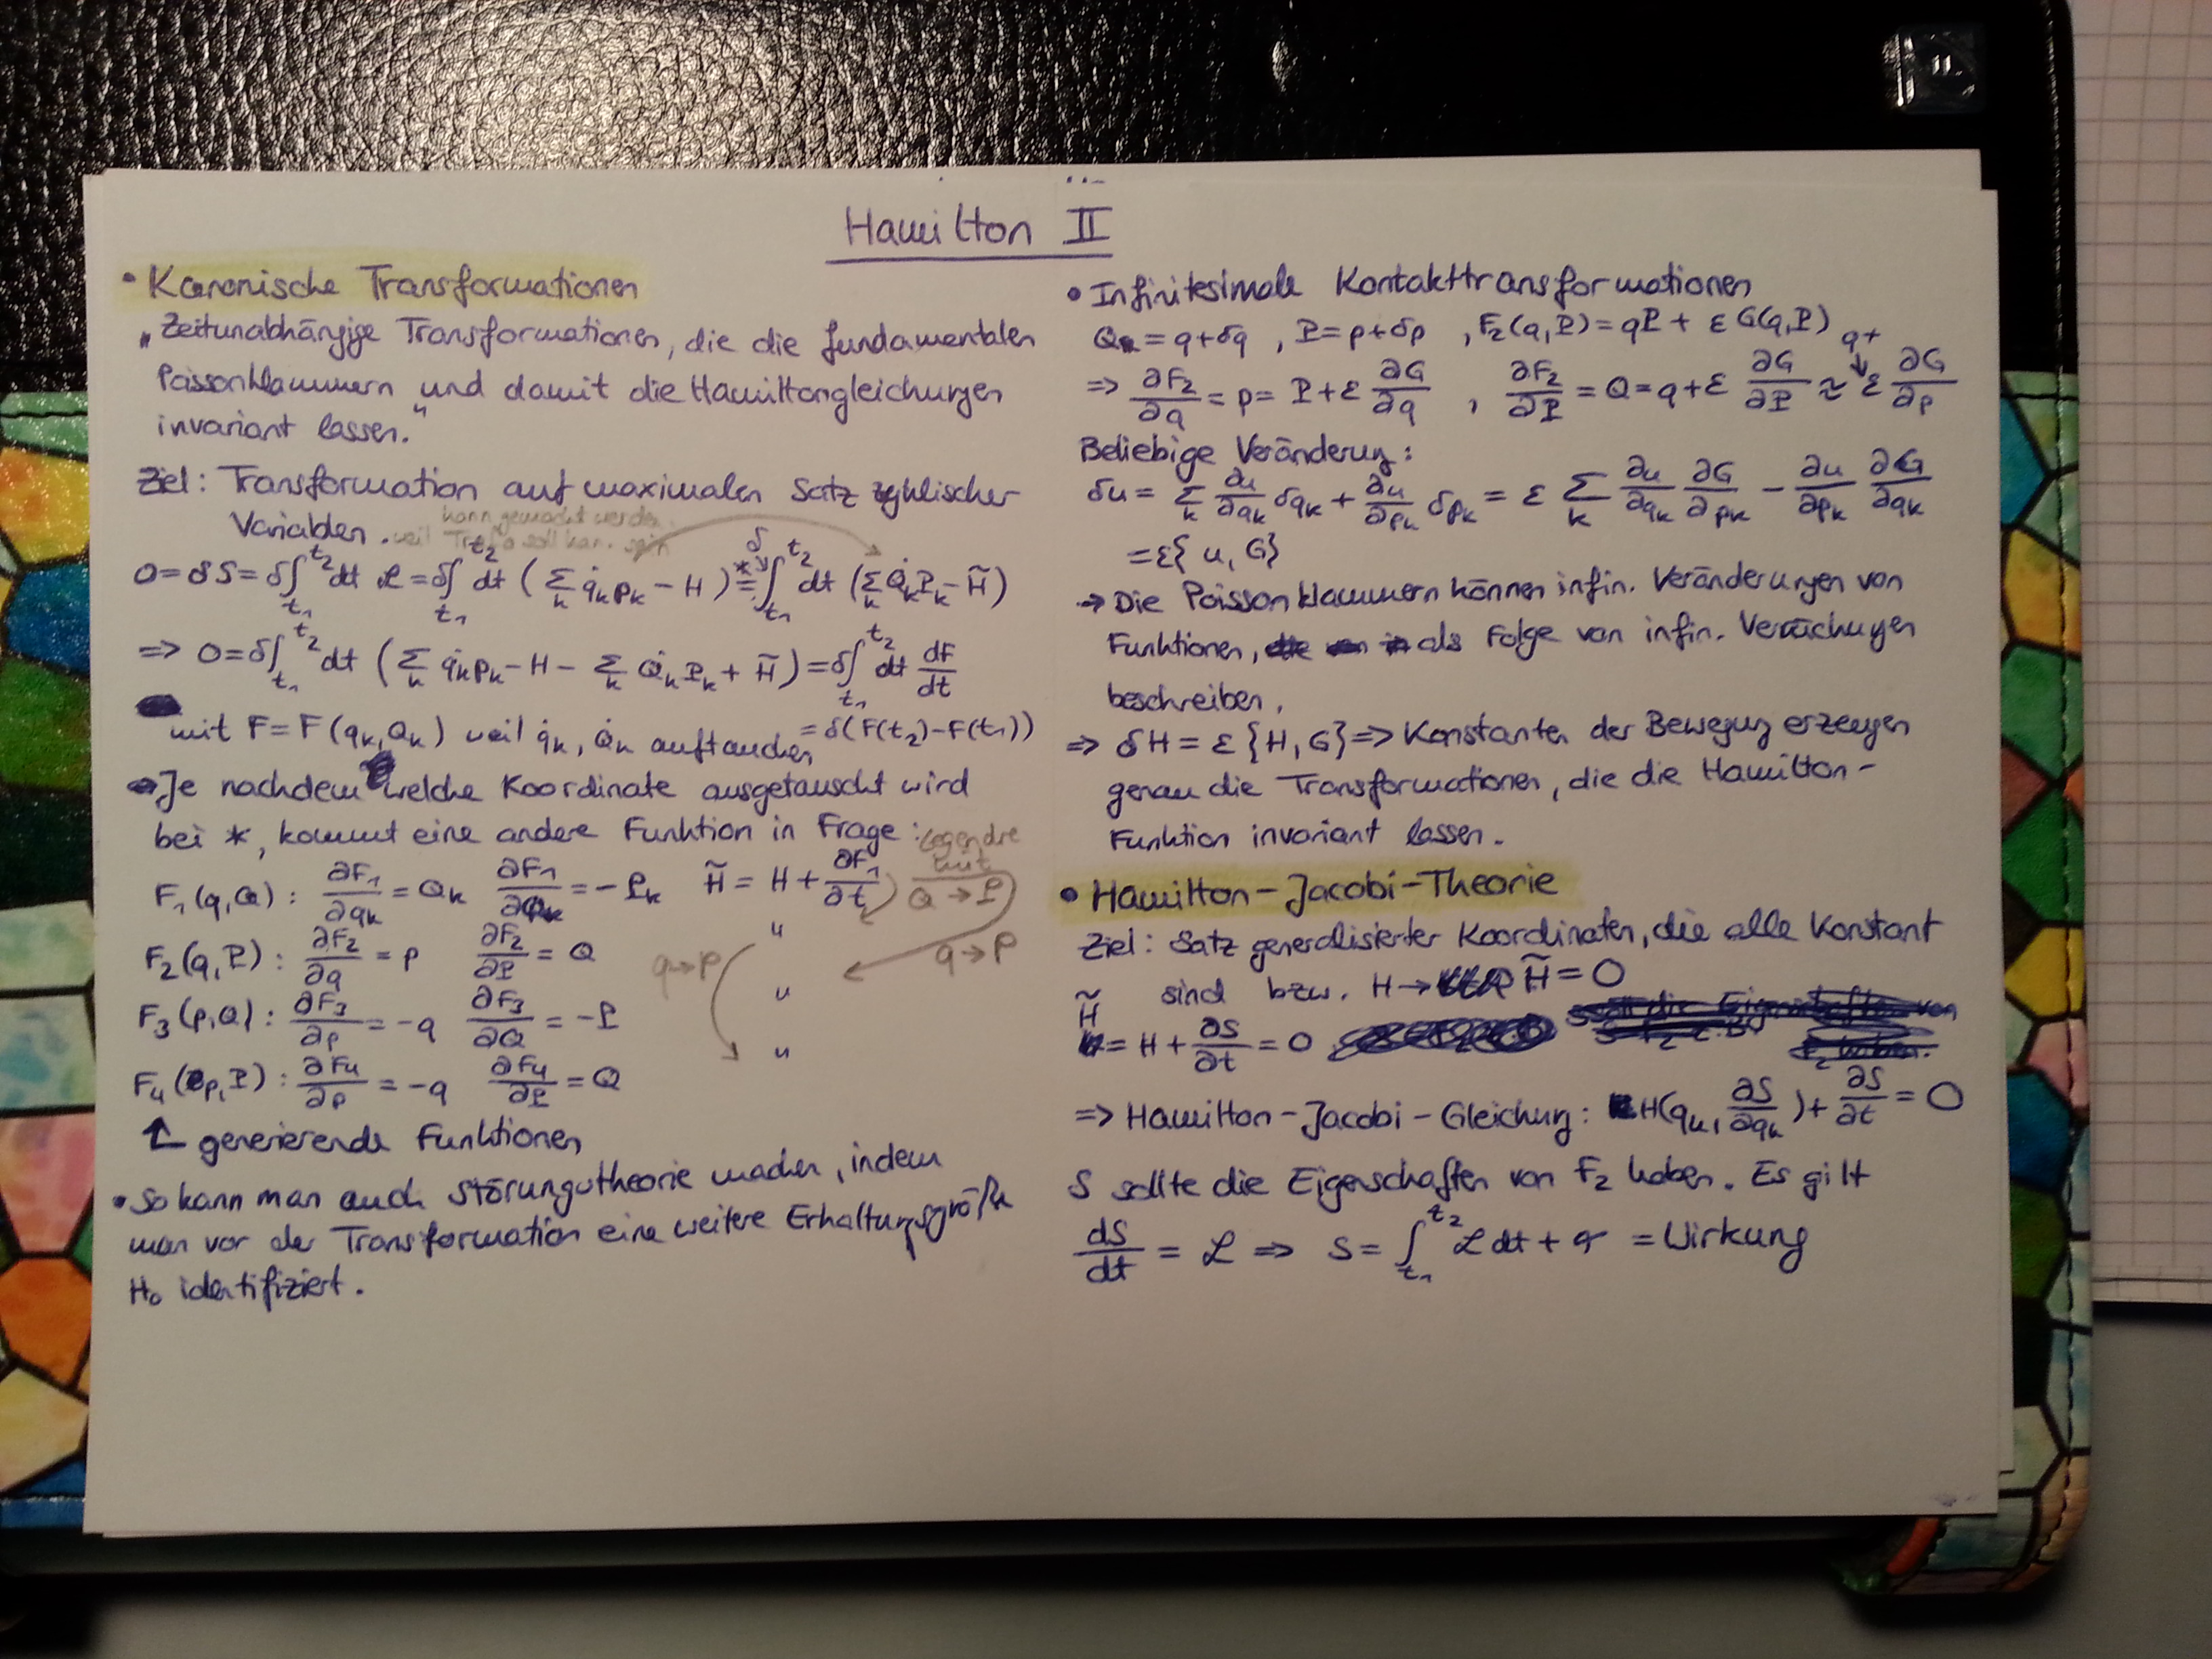 Hamilton II
• Kanonische Transformationen
„Zeitunabhängige Transformationen, die die fundamentalen
Poissonklammern und damit die Hamiltongleichungen
invariant lassen."
Ziel: Transformation auf maximalen Satz zyklischer
Variablen. kann gemacht werden
weil Trafo soll kan. sein
0 = δS = δ∫_{t₁}^{t₂} dt ℒ = δ∫_{t₁}^{t₂} dt (Σ_k q̇_k p_k − H) =* δ∫_{t₁}^{t₂} dt (Σ_k Q̇_k P_k − H̃)
⇒ 0 = δ∫_{t₁}^{t₂} dt (Σ_k q̇_k p_k − H − Σ_k Q̇_k P_k + H̃) = δ∫_{t₁}^{t₂} dt dF/dt
mit F = F(q_k, Q_k) weil q̇_k, Q̇_k auftauchen = δ(F(t₂)−F(t₁))
→ Je nachdem welche Koordinate ausgetauscht wird
bei *, kommt eine andere Funktion in Frage:
Legendre mit Q → P
F₁(q,Q): ∂F₁/∂q_k = Q_k ∂F₁/∂Q_k = −P_k H̃ = H + ∂F₁/∂t
F₂(q,P): ∂F₂/∂q = p ∂F₂/∂P = Q " q→p q→p
F₃(p,Q): ∂F₃/∂p = −q ∂F₃/∂Q = −P "
F₄(p,P): ∂F₄/∂p = −q ∂F₄/∂P = Q "
↑ generierende Funktionen
• So kann man auch Störungstheorie machen, indem
man vor der Transformation eine weitere Erhaltungsgröße
H₀ identifiziert.
• Infinitesimale Kontakttransformationen
Q = q+δq, P = p+δp, F₂(q,P) = qP + εG(q,P)
⇒ ∂F₂/∂q = p = P + ε ∂G/∂q, ∂F₂/∂P = Q = q + ε ∂G/∂P ≈ q + ε ∂G/∂p
Beliebige Veränderung:
δu = Σ_k ∂u/∂q_k δq_k + ∂u/∂p_k δp_k = ε Σ_k ∂u/∂q_k ∂G/∂p_k − ∂u/∂p_k ∂G/∂q_k
= ε{u, G}
→ Die Poissonklammern können infin. Veränderungen von
Funktionen, als Folge von infin. Verrückungen
beschreiben.
⇒ δH = ε{H, G} ⇒ Konstanten der Bewegung erzeugen
genau die Transformationen, die die Hamilton-
Funktion invariant lassen.
• Hamilton-Jacobi-Theorie
Ziel: Satz generalisierter Koordinaten, die alle Konstant
sind bzw. H → H̃ = 0
H̃ = H + ∂S/∂t = 0
⇒ Hamilton-Jacobi-Gleichung: H(q_k, ∂S/∂q_k) + ∂S/∂t = 0
S sollte die Eigenschaften von F₂ haben. Es gilt
dS/dt = ℒ ⇒ S = ∫_{t₁}^{t₂} ℒ dt + σ = Wirkung